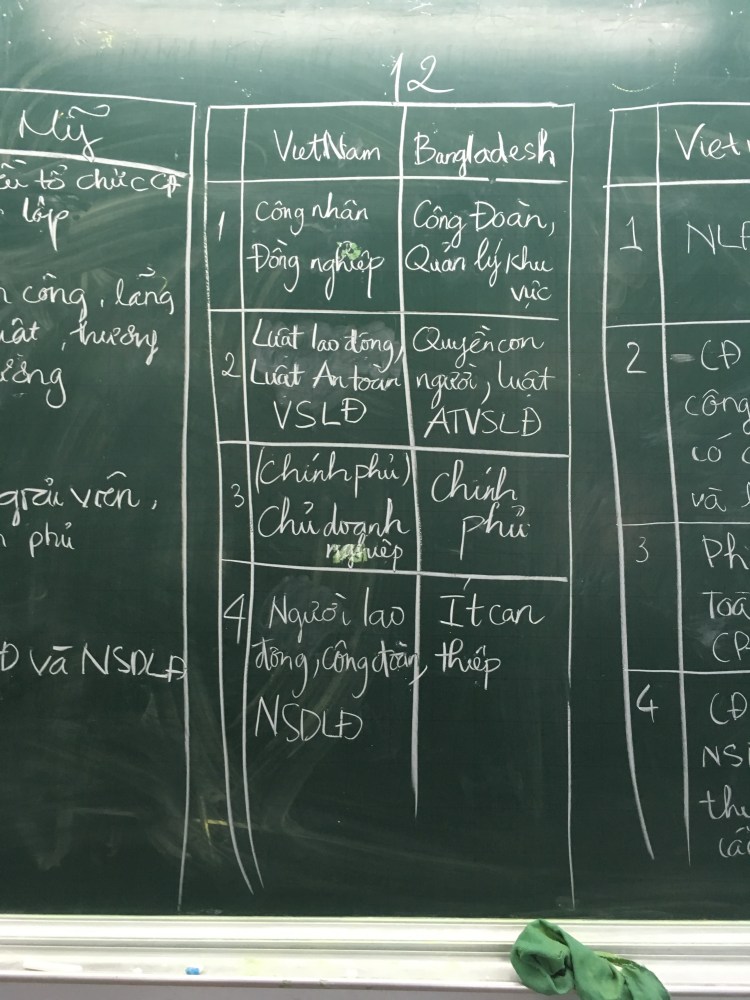 Mỹ
tổ chức CĐ
lốp
công, lãng
thương
viên,
phủ
và NSDLĐ
12
VietNam Bangladesh
1 Công nhân Công Đoàn,
Đồng nghiệp Quản lý khu
vực
2 Luật lao động, Quyền con
Luật An toàn người, luật
VSLĐ ATVSLĐ
3 (Chính phủ) Chính
Chủ doanh phủ
nghiệp
4 Người lao Ít can
động, công đoàn, thiếp
NSDLĐ
Viet
1 NLĐ
2 - CĐ
công
có
và
3 Ph
Toà
CP
4 CĐ
NS